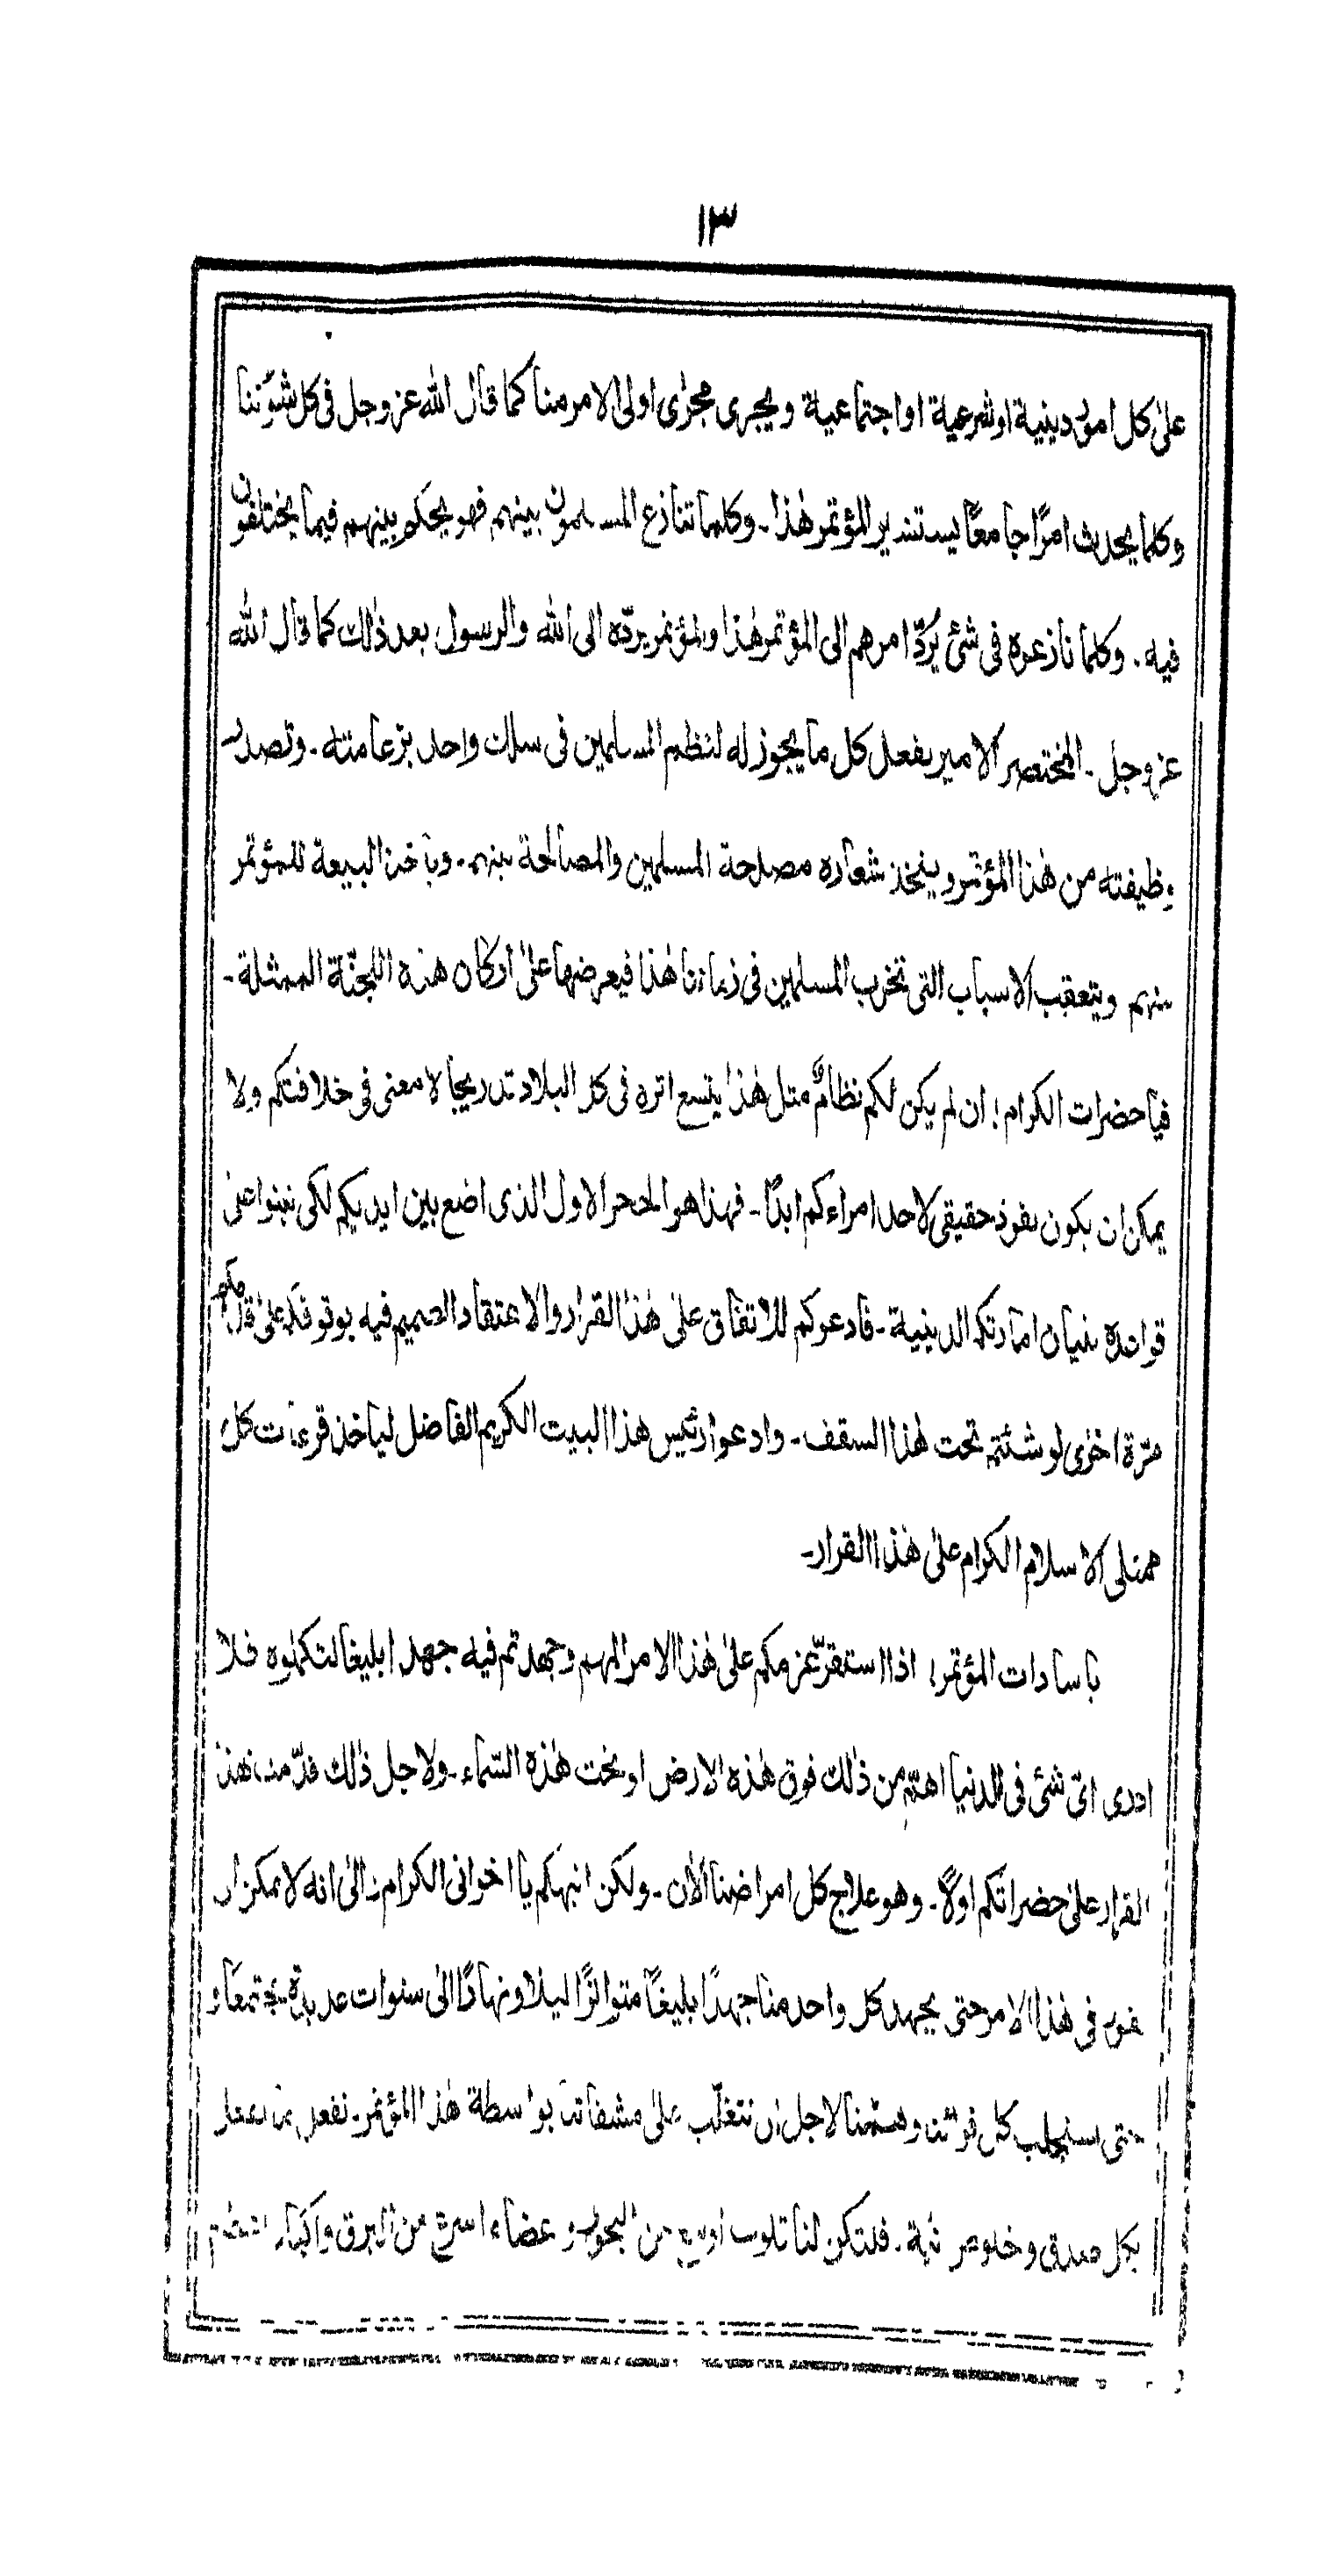 ١٣
علىٰ كل امور دينية اوشرعية اواجتماعية ويجرى مجرٰى اولى الامر منا كما قال الله عز وجل فى كل شؤننا
وكلما يحدث امرًا جامعًا يستشير المؤتمر هٰذا ـ وكلما تنازع المسلمون بينهم فهو يحكم بينهم فيما يختلفون
فيه ـ وكلما نازعوه فى شئ يُردّ امرهم الى المؤتمر هٰذا والمؤتمر يردّه الى الله والرسول بعد ذٰلك كما قال الله
عز وجل ـ المختصر الامير يفعل كل ما يجوز له لنظم المسلمين فى سلك واحد بزعامته ـ وتصدر
وظيفته من هٰذا المؤتمر ويتخذ شعاره مصلحة المسلمين والمصالحة بينهم ـ وياخذ البيعة للمؤتمر
منهم ويتعقب الاسباب التى تخرب المسلمين فى زماننا هٰذا فيعرضها علىٰ اركان هذه اللجنّة الممثلة ـ
فيا حضرات الكرام! ان لم يكن لكم نظامٌ مثل هٰذا يتسع اثره فى كل البلاد تدريجا لا معنى فى خلافتكم ولا
يمكن ان يكون نفوذ حقيقى لاحد امراءكم ابدًا ـ فهذا هو الحجر الاول الذى اضع بين ايديكم لكى تبنوا علىٰ
قواعده بنيان امارتكم الدينية ـ فادعوكم للاتفاق علىٰ هٰذا القرار والاعتقاد الصميم فيه بوقوفكم علىٰ
مرّة اخرٰى لو شئتم تحت هٰذا السقف ـ وادعوا رئيس هذا البيت الكريم الفاضل لياخذ كل
ممثلى الاسلام الكرام علىٰ هٰذا القرار ـ
يا سادات المؤتمر! اذا استقرّ عزمكم علىٰ هٰذا الامر المهم وجهدتم فيه جهدا بليغا لتكملوه فلا
ادرى اىّ شئ فى الدنيا اهمّ من ذٰلك فوق هٰذه الارض او تحت هٰذه السماء ـ ولاجل ذٰلك قدّمت هٰذا
القرار علىٰ حضراتكم اولًا ـ وهو علاج كل امراضنا الاٰن ـ ولكن انبهكم يا اخوانى الكرام الىٰ انه لا يمكن ان
نفوز فى هٰذا الامر حتى يجهد كل واحد منا جهدًا بليغًا متواترًا ليلا ونهارًا الىٰ سنوات عديدة مجتمعًا و
حتى نستجلب كل وهممنا لاجل ان نتغلّب علىٰ مشقاته بواسطة هٰذا المؤتمر ـ نفعل ما نفعل
بكل صدق وخلوص نية ـ فلتكن لنا قلوب اوسع من البحور و اعضاء اسرع من البرق